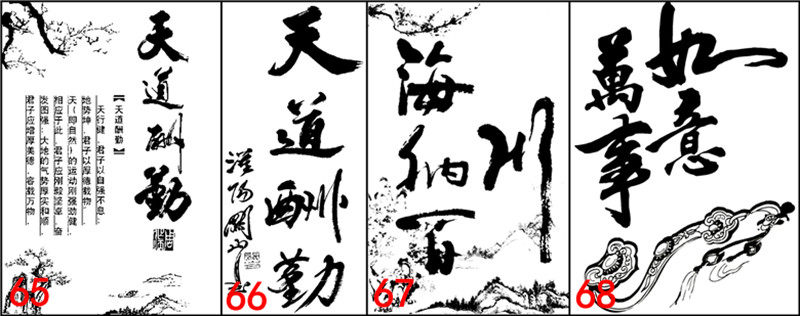 天道酬勤
【天道酬勤】
天行健,君子以自强不息。
地势坤,君子以厚德载物。
天(即自然)的运动刚强劲健,
相应于此,君子应刚毅坚卓,奋
发图强;大地的气势厚实和顺,
君子应增厚美德,容载万物。
65
天道酬勤
66
海纳百
川
67
如意
萬事
68